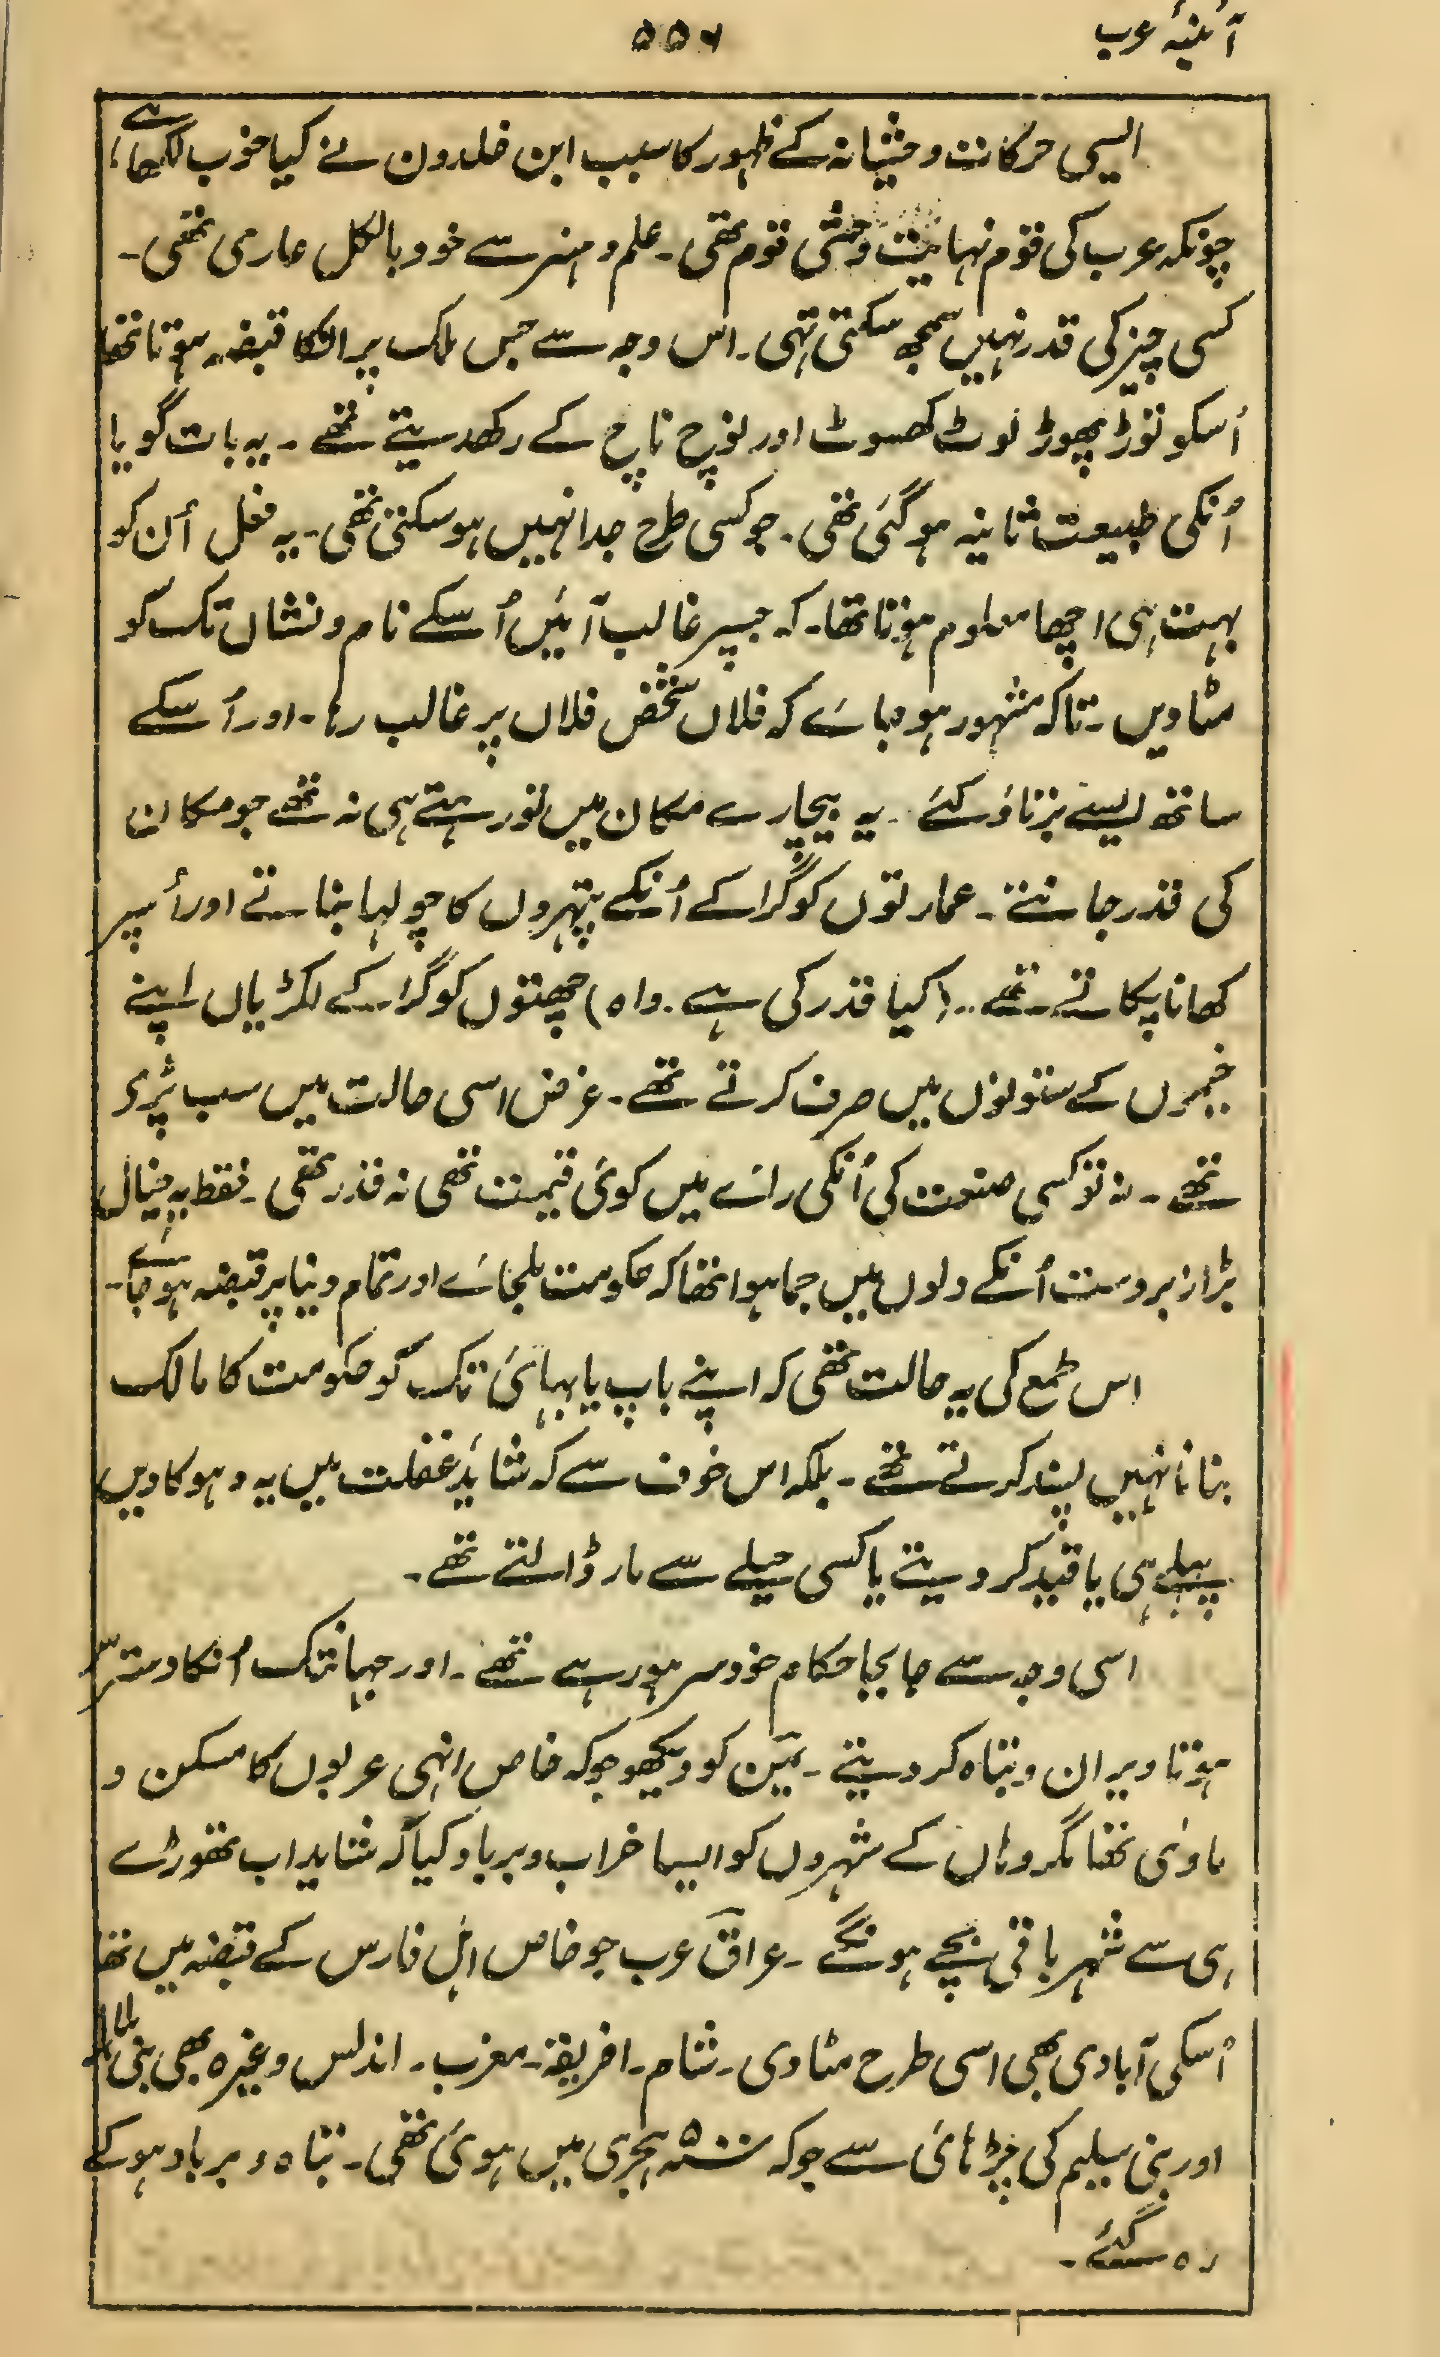 آئینۂ عرب
۵۵۶
ایسی حرکات وحشیانہ کے ظہور کا سبب ابن خلدون نے کیا خوب لکھا ہے،
چونکہ عرب کی قوم نہایت وحشی قوم تھی۔ علم و ہنر سے خود بالکل عاری تھی۔
کسی چیز کی قدر نہیں سمجھ سکتی تہی۔ اس وجہ سے جس ملک پر انکا قبضہ ہوتا تھا
اُسکو توڑ پھوڑ لوٹ کھسوٹ اور نوچ ناچ کے رکھدیتے تھے۔ یہ بات گویا
اُنکی طبیعت ثانیہ ہوگئی تھی۔ جو کسی طرح جدا نہیں ہوسکتی تھی۔ یہ فعل اُن کو
بہت ہی اچھا معلوم ہوتا تھا۔ کہ جسپر غالب آئیں اُسکے نام و نشان تک کو
مٹا دیں۔ تاکہ مشہور ہو جائے کہ فلاں شخص فلاں پر غالب رہا۔ اور اُسکے
ساتھ ایسے برتاؤ کئے۔ یہ بیچارے مکان میں تو رہتے ہی نہ تھے جو مکان
کی قدر جانتے۔ عمارتوں کو گرا کے اُنکے پتہروں کا چولہا بناتے اور اُسپر
کھانا پکاتے تھے۔ (کیا قدر کی ہے۔ واہ) چھتوں کو گرا کے لکڑیاں اپنے
خیموں کے ستونوں میں صرف کرتے تھے۔ غرض اسی حالت میں سب پڑے
تھے۔ نہ تو کسی صنعت کی اُنکی رائے میں کوئی قیمت تھی نہ قدر تھی۔ فقط یہ خیال
بڑا زبردست اُنکے دلوں میں جما ہوا تھا کہ حکومت ملجائے اور تمام دنیا پر قبضہ ہو جائے۔
اس طمع کی یہ حالت تھی کہ اپنے باپ یا بہائی تک کو حکومت کا مالک
بنانا نہیں پسند کرتے تھے۔ بلکہ اس خوف سے کہ شاید غفلت میں یہ دہوکا دیں
پہلے ہی یا قید کر دیتے یا کسی حیلے سے مار ڈالتے تھے۔
اسی وجہ سے جابجا حکام خود سر ہو رہے تھے۔ اور جہانتک اُنکا دسترس
ہوتا ویران و تباہ کر دیتے۔ یمن کو دیکھو جو کہ خاص انہی عربوں کا مسکن و
ماوٰی تھا مگر وہاں کے شہروں کو ایسا خراب و برباد کیا کہ شاید اب تھوڑے
ہی سے شہر باقی بچے ہونگے۔ عراق عرب جو خاص اہل فارس کے قبضہ میں تھا
اُسکی آبادی بھی اسی طرح مٹا دی۔ شام۔ افریقۃ۔ مغرب۔ اندلس وغیرہ بھی بنی ہلال
اور بنی سلیم کی چڑہائی سے جو کہ ۵۰۰ ہجری میں ہوئی تھی۔ تباہ و برباد ہوکے
رہ گئے۔